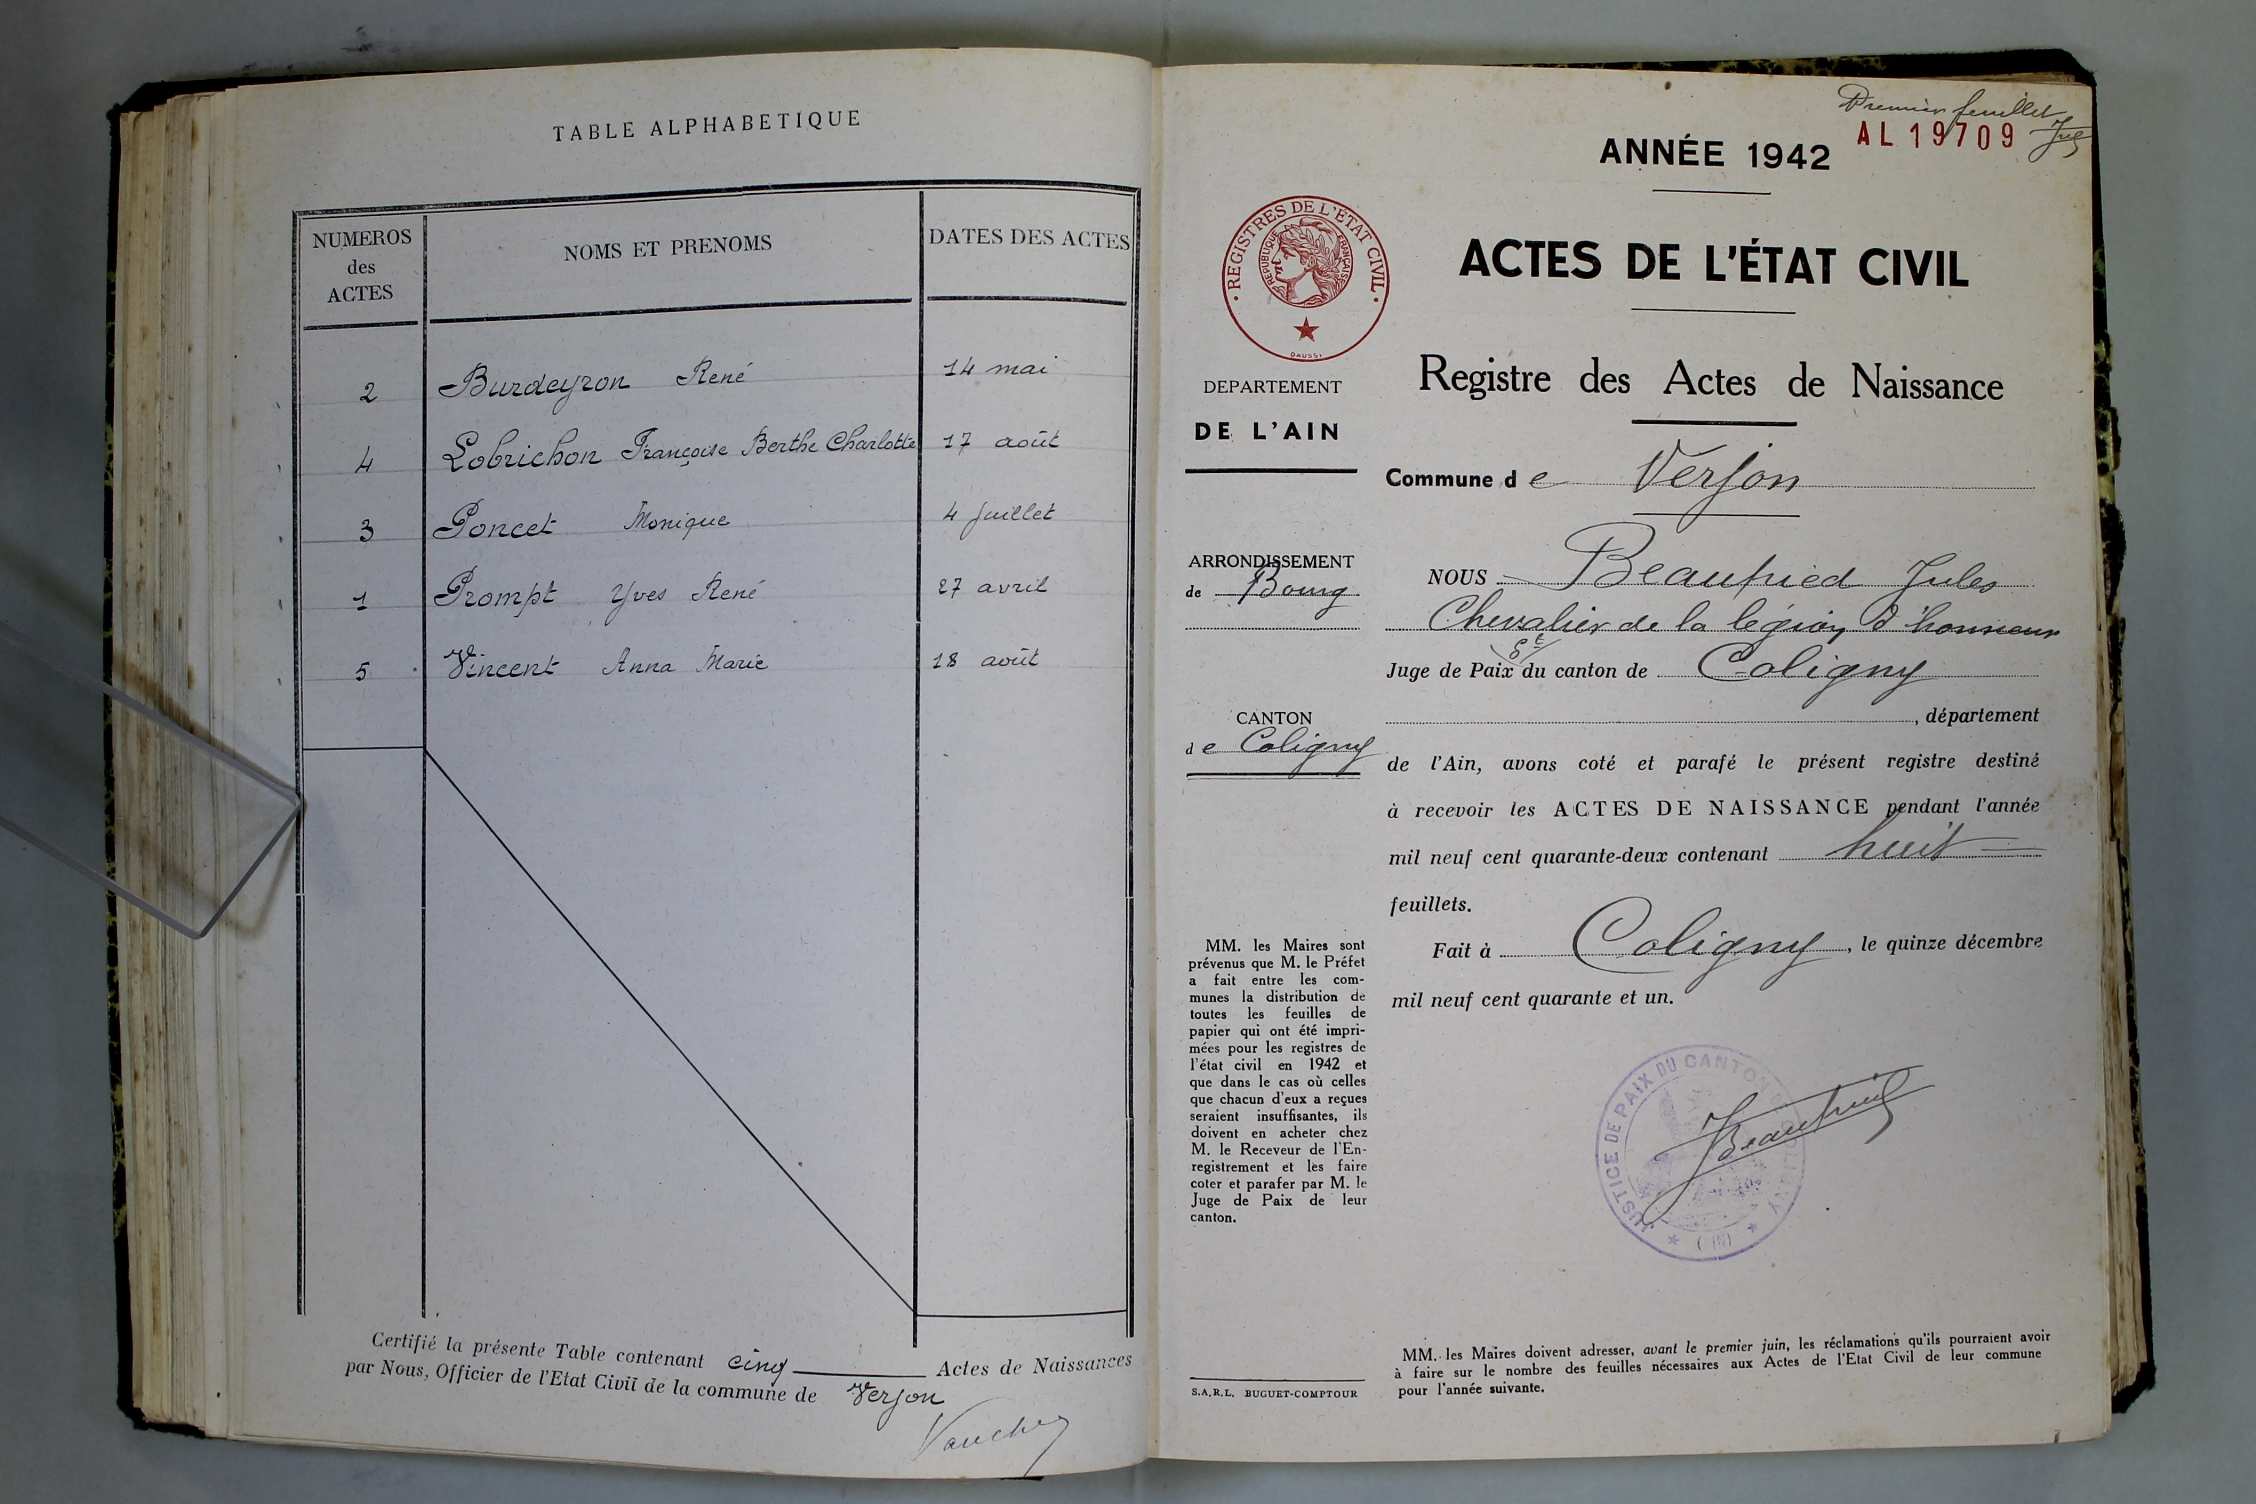 TABLE ALPHABETIQUE
NUMEROS des ACTES
NOMS ET PRENOMS
DATES DES ACTES
2 Burdeyron René 14 mai
4 Lobrichon Françoise Berthe Charlotte 17 août
3 Poncet Monique 4 Juillet
1 Prompt Yves René 27 avril
5 Vincent Anna Marie 18 août
Certifié la présente Table contenant cinq Actes de Naissances
par Nous, Officier de l'Etat Civil de la commune de Verjon
Premier feuillet
AL 19709
ANNÉE 1942
REGISTRES DE L'ETAT CIVIL
REPUBLIQUE FRANÇAISE
DAUSSI
ACTES DE L'ÉTAT CIVIL
Registre des Actes de Naissance
DEPARTEMENT
DE L'AIN
Commune de Verjon
ARRONDISSEMENT
de Bourg
CANTON
de Coligny
NOUS Beaufried Jules
Chevalier de la légion d'honneur
Juge de Paix du canton de Coligny
, département
de l'Ain, avons coté et parafé le présent registre destiné
à recevoir les ACTES DE NAISSANCE pendant l'année
mil neuf cent quarante-deux contenant huit
feuillets.
Fait à Coligny, le quinze décembre
mil neuf cent quarante et un.
JUSTICE DE PAIX DU CANTON
MM. les Maires sont
prévenus que M. le Préfet
a fait entre les com-
munes la distribution de
toutes les feuilles de
papier qui ont été impri-
mées pour les registres de
l'état civil en 1942 et
que dans le cas où celles
que chacun d'eux a reçues
seraient insuffisantes, ils
doivent en acheter chez
M. le Receveur de l'En-
registrement et les faire
coter et parafer par M. le
Juge de Paix de leur
canton.
S.A.R.L. BUGUET-COMPTOUR
MM. les Maires doivent adresser, avant le premier juin, les réclamations qu'ils pourraient avoir
à faire sur le nombre des feuilles nécessaires aux Actes de l'Etat Civil de leur commune
pour l'année suivante.